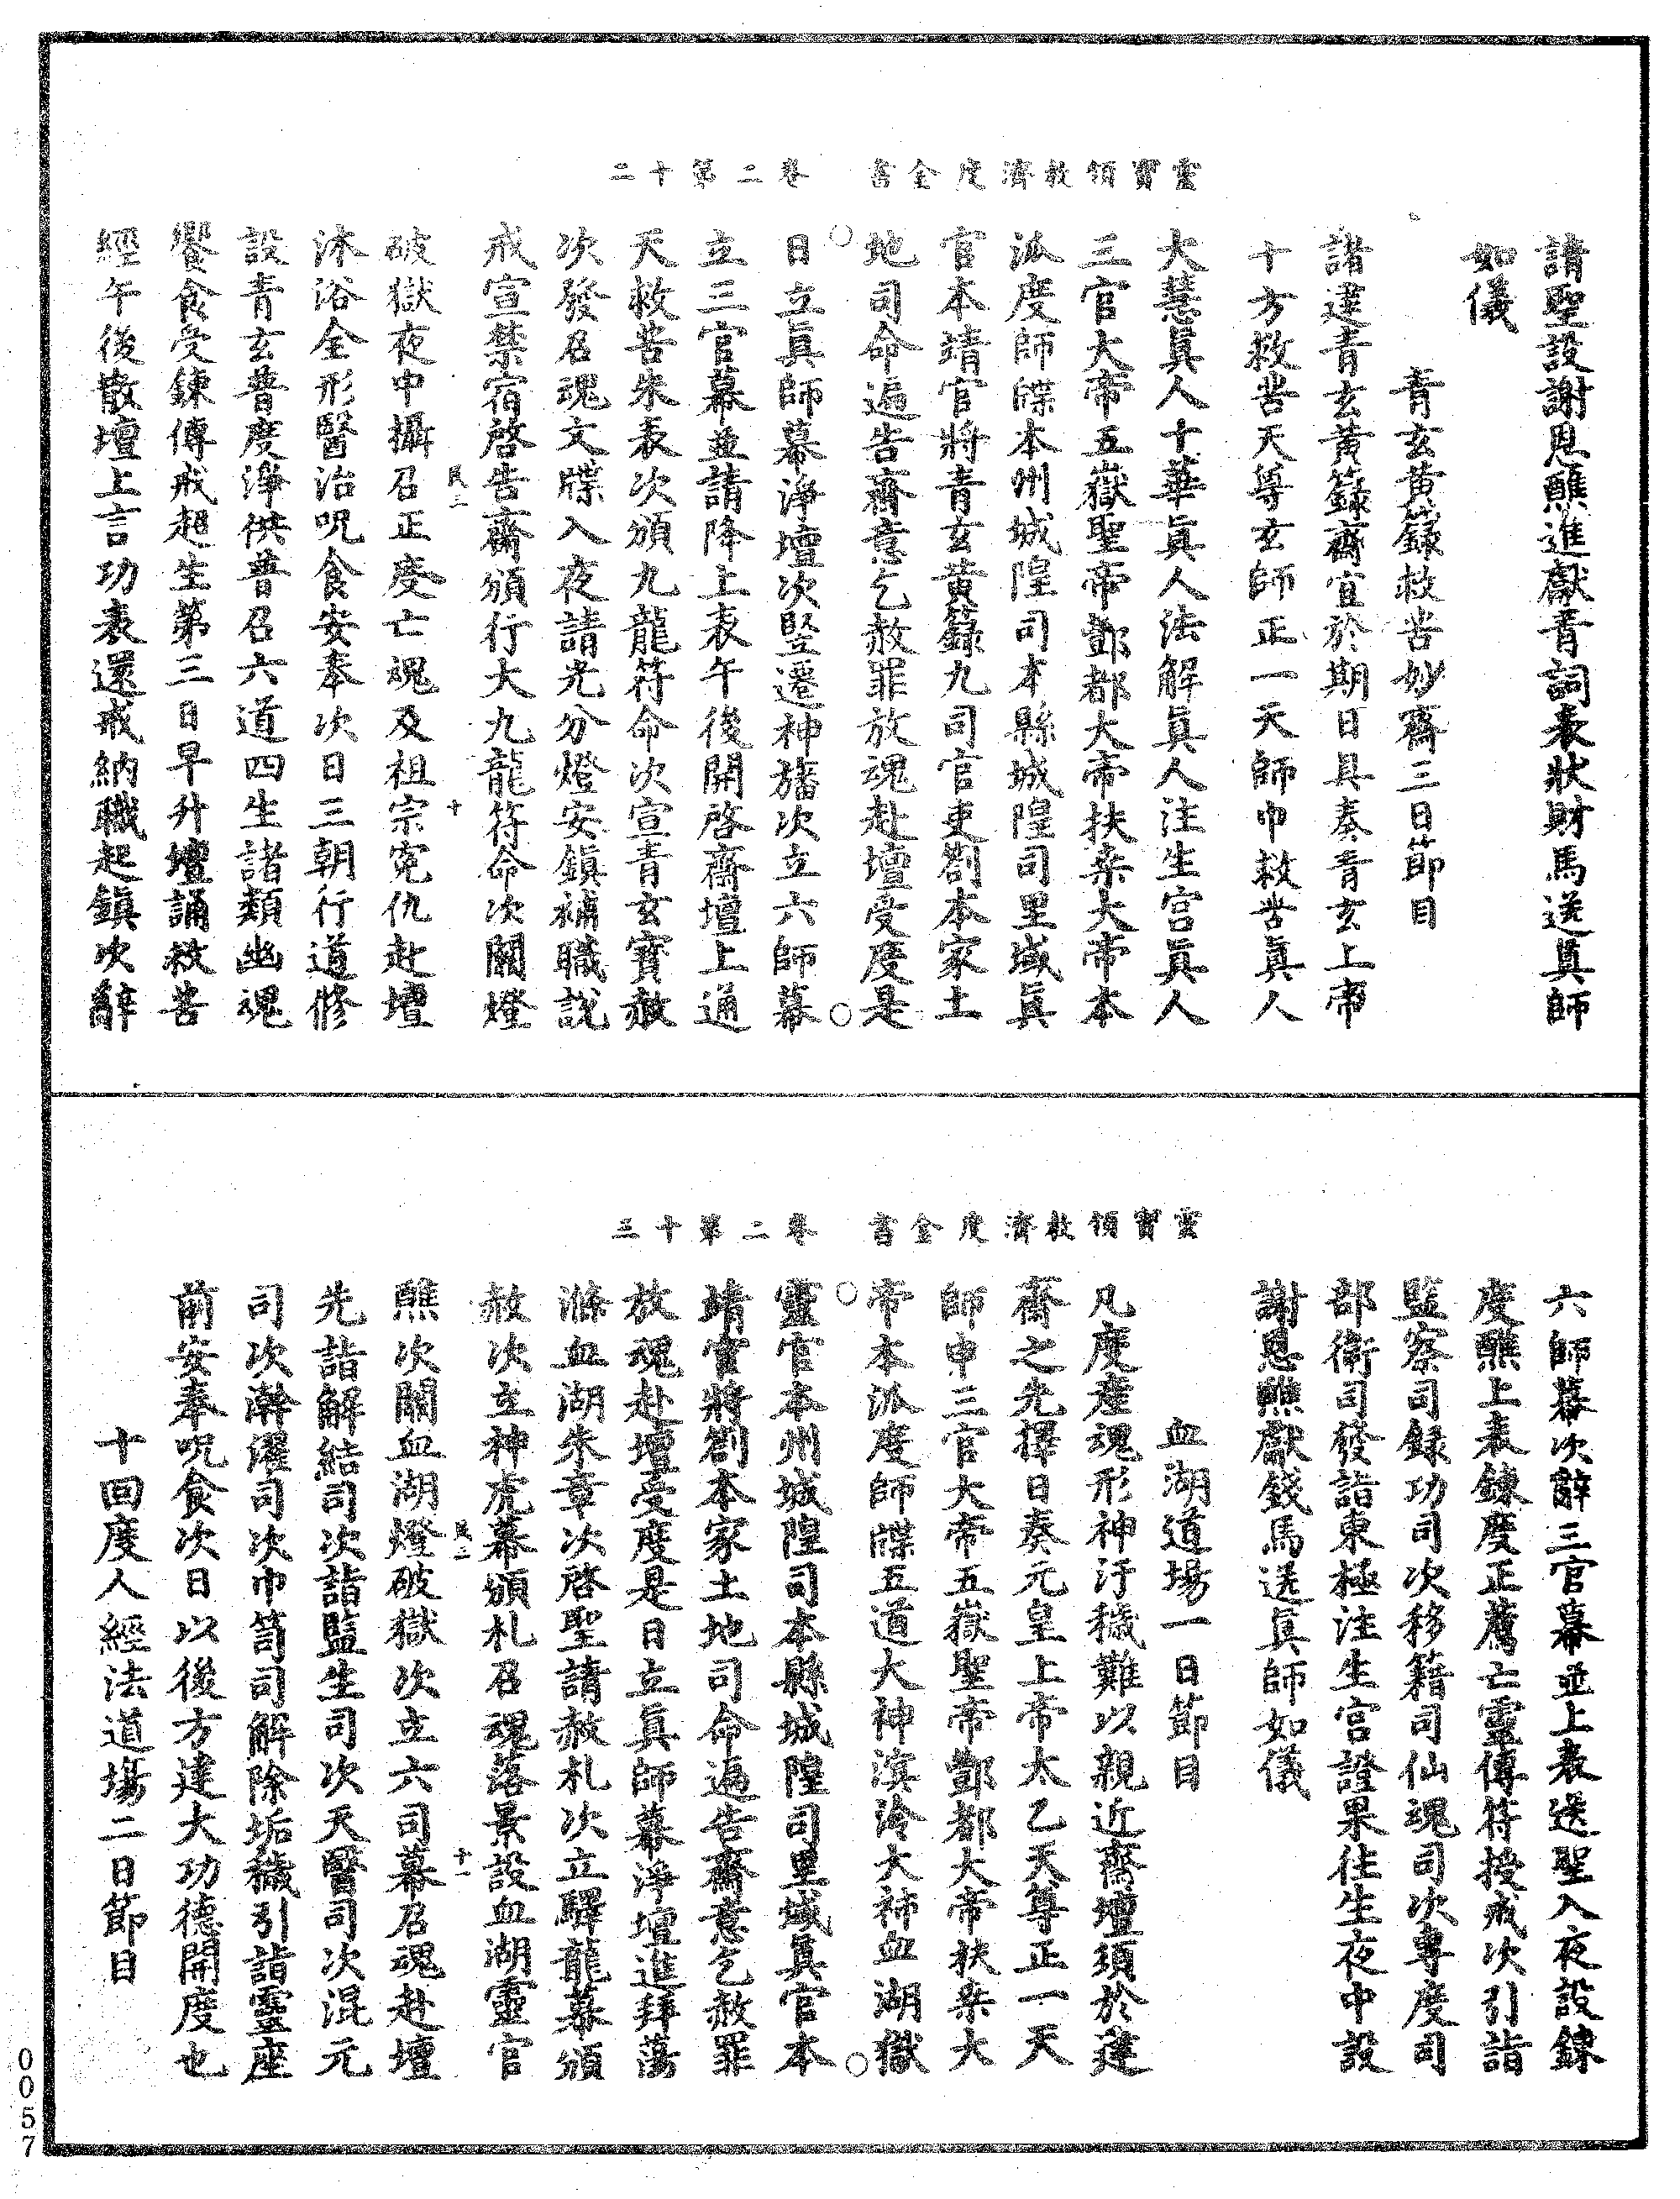 靈寶領教濟度金書　卷二第十二
請聖設謝恩醮進獻青詞表狀財馬送真師
如儀
青玄黃籙救苦妙齋三日節目
諸建青玄黃籙齋宜於期日具奏青玄上帝
十方救苦天尊玄師正一天師巾救苦眞人
大慧眞人十華眞人法解眞人注生宮眞人
三官大帝五嶽聖帝酆都大帝扶桒大帝本
派度師牒本州城隍司本縣城隍司里域眞
官本靖官將青玄黃籙九司官吏劄本家土
地司命遍告齋意乞赦罪放魂赴壇受度是
日立眞師幕淨壇次竪遷神旛次立六師幕
立三官幕並請降上表午後開啓齋壇上通
天救苦朱表次頒九龍符命次宣青玄寶赦
次發召魂文牒入夜請光分燈安鎮補職說
戒宣禁宿啓告齋頒行大九龍符命次關燈
破獄夜中攝召正度亡魂及祖宗寃仇赴壇
民二
十
沐浴全形醫治呪食安奉次日三朝行道修
設青玄普度淨供普召六道四生諸類幽魂
饗食受鍊傳戒超生第三日早升壇誦救苦
經午後散壇上言功表還戒納職起鎮次辭
靈寶領教濟度金書　卷二第十三
六師幕次辭三官幕並上表送聖入夜設鍊
度醮上表鍊度正薦亡靈傳符授戒次引詣
監察司錄功司次移籍司仙魂司次專度司
部衛司發詣東極注生宮證果住生夜中設
謝恩醮獻錢馬送眞師如儀
血湖道場一日節目
凡度產魂形神汙穢難以親近齋壇須於建
齋之先擇日奏元皇上帝太乙天尊正一天
師申三官大帝五嶽聖帝酆都大帝扶桒大
帝本派度師牒五道大神溟泠大神血湖獄
靈官本州城隍司本縣城隍司里域眞官本
靖官將劄本家土地司命遍告齋意乞赦罪
放魂赴壇受度是日立眞師幕淨壇進拜蕩
滌血湖朱章次啓聖請赦札次立驛龍幕頒
赦次立神虎幕頒札召魂落景設血湖靈官
醮次關血湖燈破獄次立六司幕召魂赴壇
民二
十一
先詣解結司次詣監生司次天醫司次混元
司次澣濯司次巾笥司解除垢穢引詣靈座
前安奉呪食次日以後方建大功德開度也
十回度人經法道場二日節目
0057